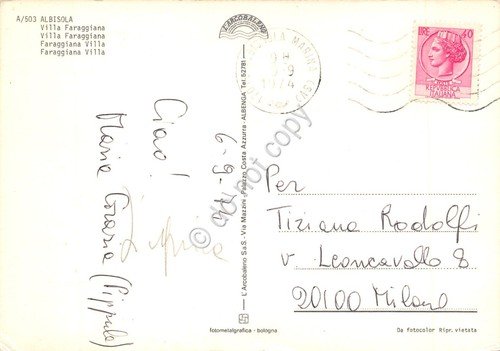 A/503 ALBISOLA
Villa Faraggiana
Villa Faraggiana
Faraggiana Villa
Faraggiana Villa
L'ARCOBALENO
MARINA
1974
LIRE 40
REPUBBLICA
ITALIANA
6-9-74
Ciao!
Maria Grazia (Pippula)
L'Arcobaleno S.a.S. - Via Mazzini - Palazzo Costa Azzurra - ALBENGA Tel. 52781
do not copy
Per
Tiziana Rodolfi
v. Leoncavallo 8
20100 Milano
fotometalgrafica - bologna
Da fotocolor Ripr. vietata